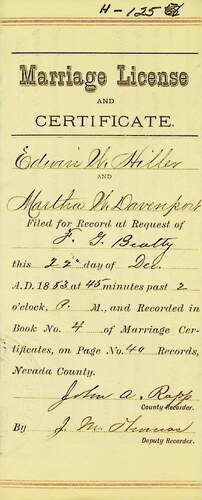 H-125
Marriage License
AND
CERTIFICATE.
Edwin W. Hiller
AND
Martha W. Davenport
Filed for Record at Request of
F. G. Beatty
this 22d day of Dec.
A.D. 1853 at 45 minutes past 2
o'clock, P. M., and Recorded in
Book No. 4 of Marriage Cer-
tificates, on Page No. 40 Records,
Nevada County.
John A. Rapp
County Recorder.
By J. M. Thomas
Deputy Recorder.